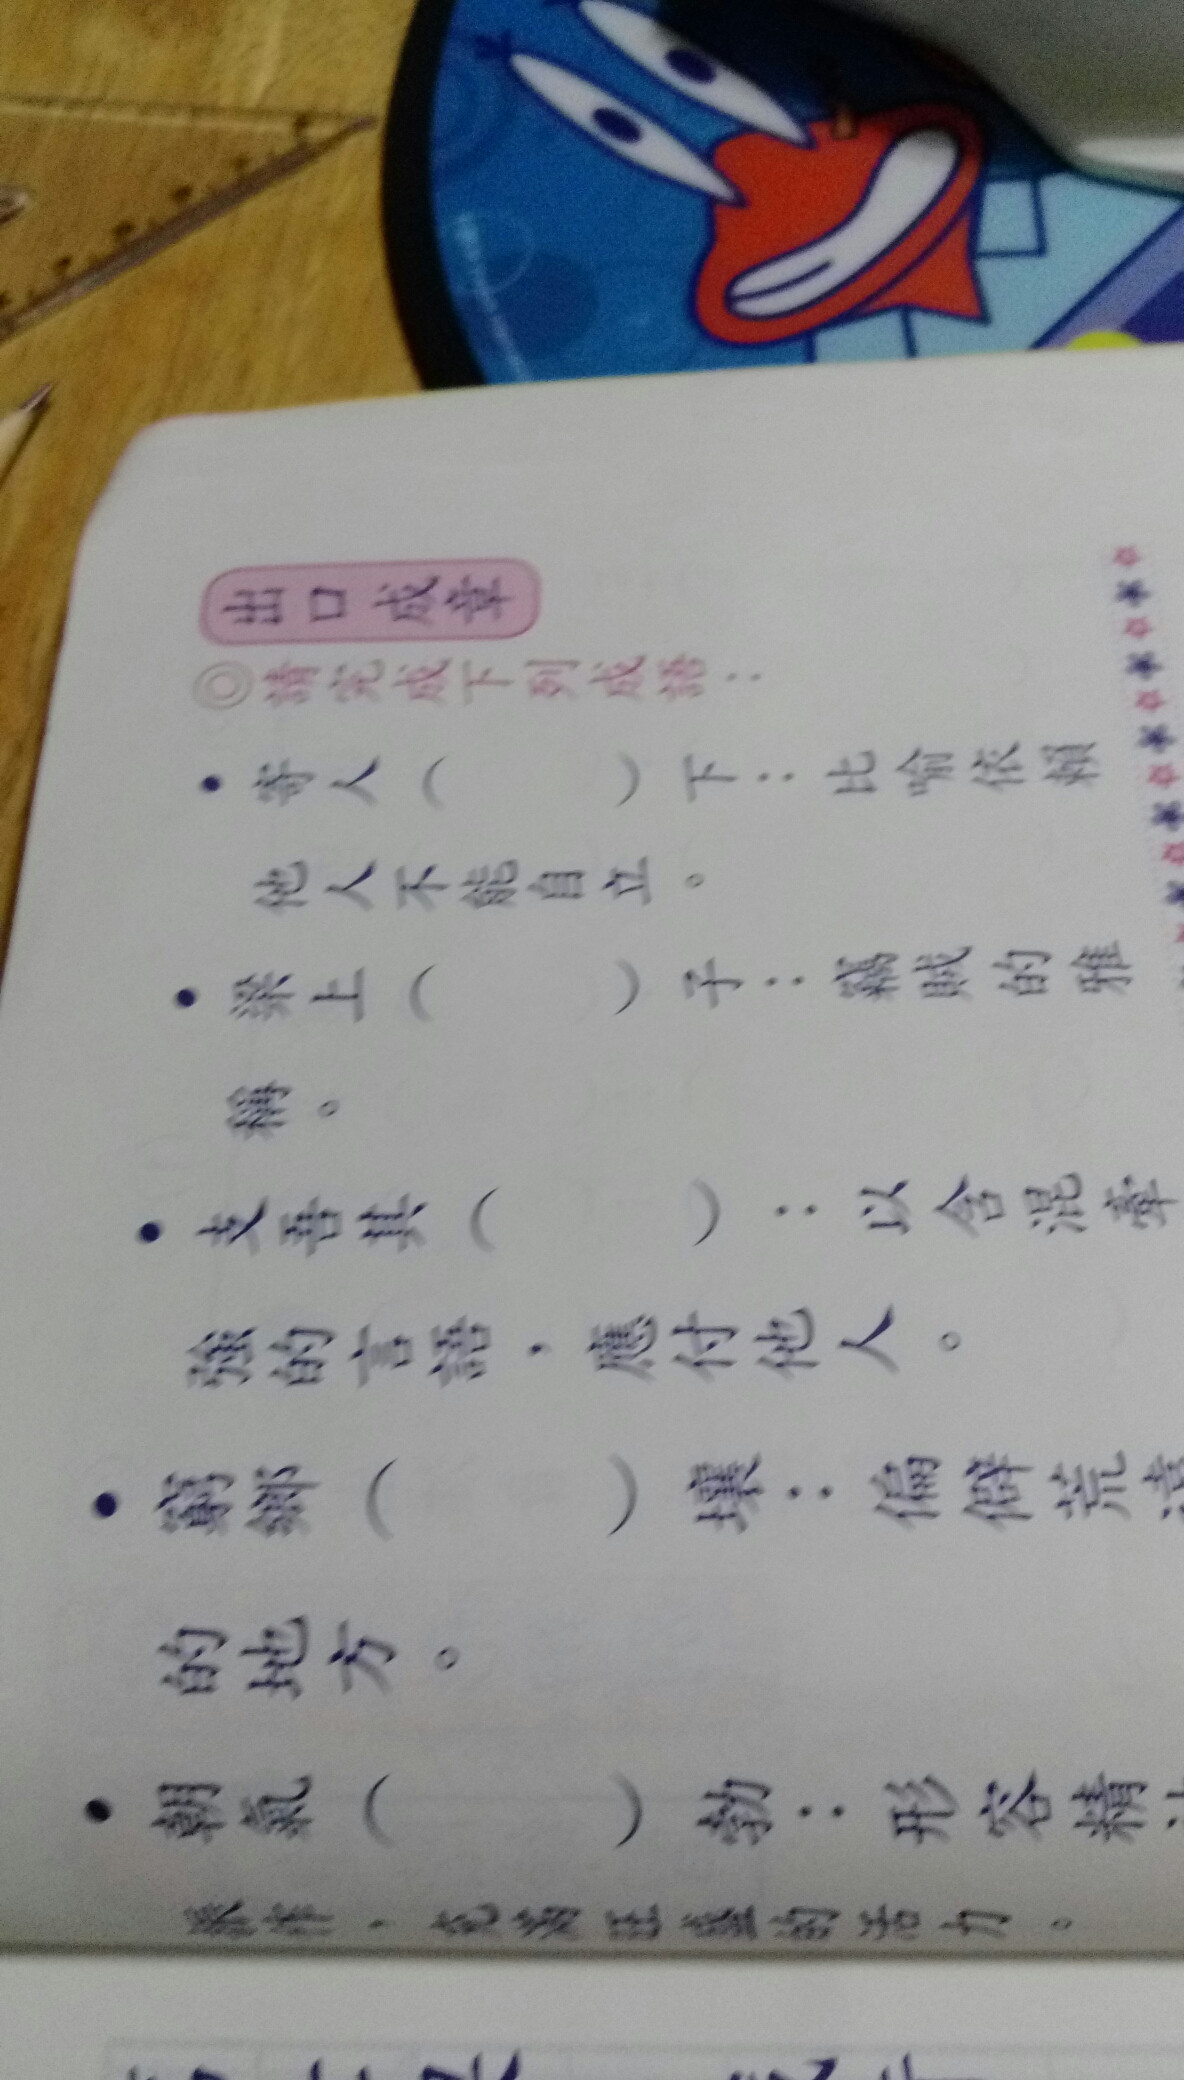 出口成章
◎請完成下列成語：
•寄人（　　）下：比喻依賴
他人不能自立。
•梁上（　　）子：竊賊的雅
稱。
•支吾其（　　）：以含混牽
強的言語，應付他人。
•窮鄉（　　）壤：偏僻荒遠
的地方。
•朝氣（　　）勃：形容精
振作，充滿旺盛的活力。